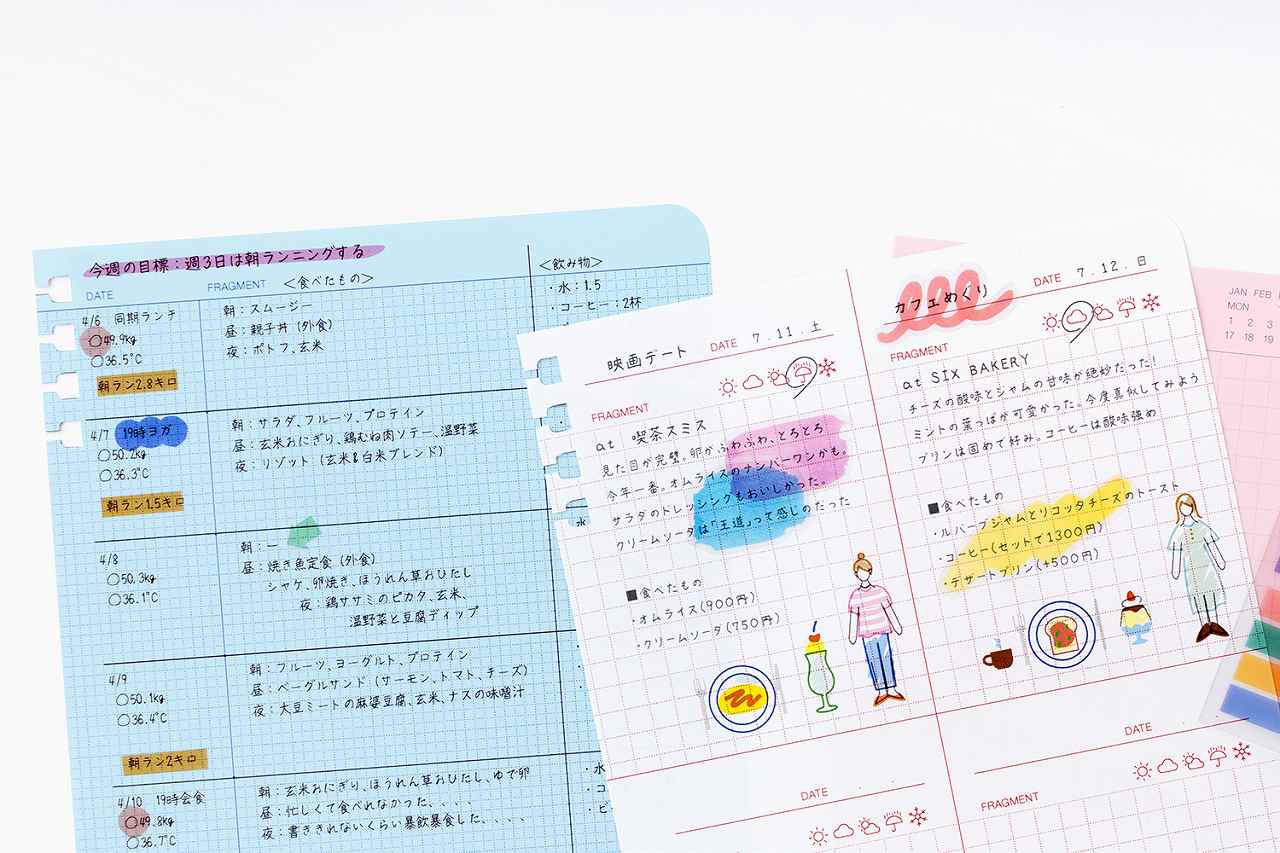 今週の目標：週3日は朝ランニングする
DATE
FRAGMENT
＜食べたもの＞
＜飲み物＞
・水：1.5
・コーヒー：2杯
4/6 同期ランチ
○49.9kg
○36.5℃
朝ラン2.8キロ
朝：スムージー
昼：親子丼（外食）
夜：ポトフ、玄米
4/7 19時ヨガ
○50.2kg
○36.3℃
朝ラン1.5キロ
朝：サラダ、フルーツ、プロテイン
昼：玄米おにぎり、鶏むね肉ソテー、温野菜
夜：リゾット（玄米&白米ブレンド）
4/8
○50.3kg
○36.1℃
朝：ー
昼：焼き魚定食（外食）
シャケ、卵焼き、ほうれん草おひたし
夜：鶏ササミのピカタ、玄米、
温野菜と豆腐ディップ
4/9
○50.1kg
○36.4℃
朝ラン2キロ
朝：フルーツ、ヨーグルト、プロテイン
昼：ベーグルサンド（サーモン、トマト、チーズ）
夜：大豆ミートの麻婆豆腐、玄米、ナスの味噌汁
4/10 19時会食
○49.8kg
○36.7℃
朝：玄米おにぎり、ほうれん草おひたし、ゆで卵
昼：忙しくて食べれなかった、、、、
夜：書ききれないくらい暴飲暴食した、、、、
水
・水
・コ
・ビ
映画デート
DATE
7.11.土
FRAGMENT
at 喫茶スミス
見た目が完璧。卵がふわふわ、とろとろ
今年一番。オムライスのナンバーワンかも。
サラダのドレッシングもおいしかった。
クリームソーダは「王道」って感じのだった
■食べたもの
・オムライス（900円）
・クリームソーダ（750円）
カフェめぐり
DATE
7.12.日
FRAGMENT
at SIX BAKERY
チーズの酸味とジャムの甘味が絶妙だった！
ミントの葉っぱが可愛かった。今度真似してみよう
プリンは固めで好み。コーヒーは酸味強め
■食べたもの
・ルバーブジャムとリコッタチーズのトースト
・コーヒー（セットで1300円）
・デザートプリン（+500円）
DATE
DATE
FRAGMENT
JAN FEB
MON
1 2 3
17 18 19